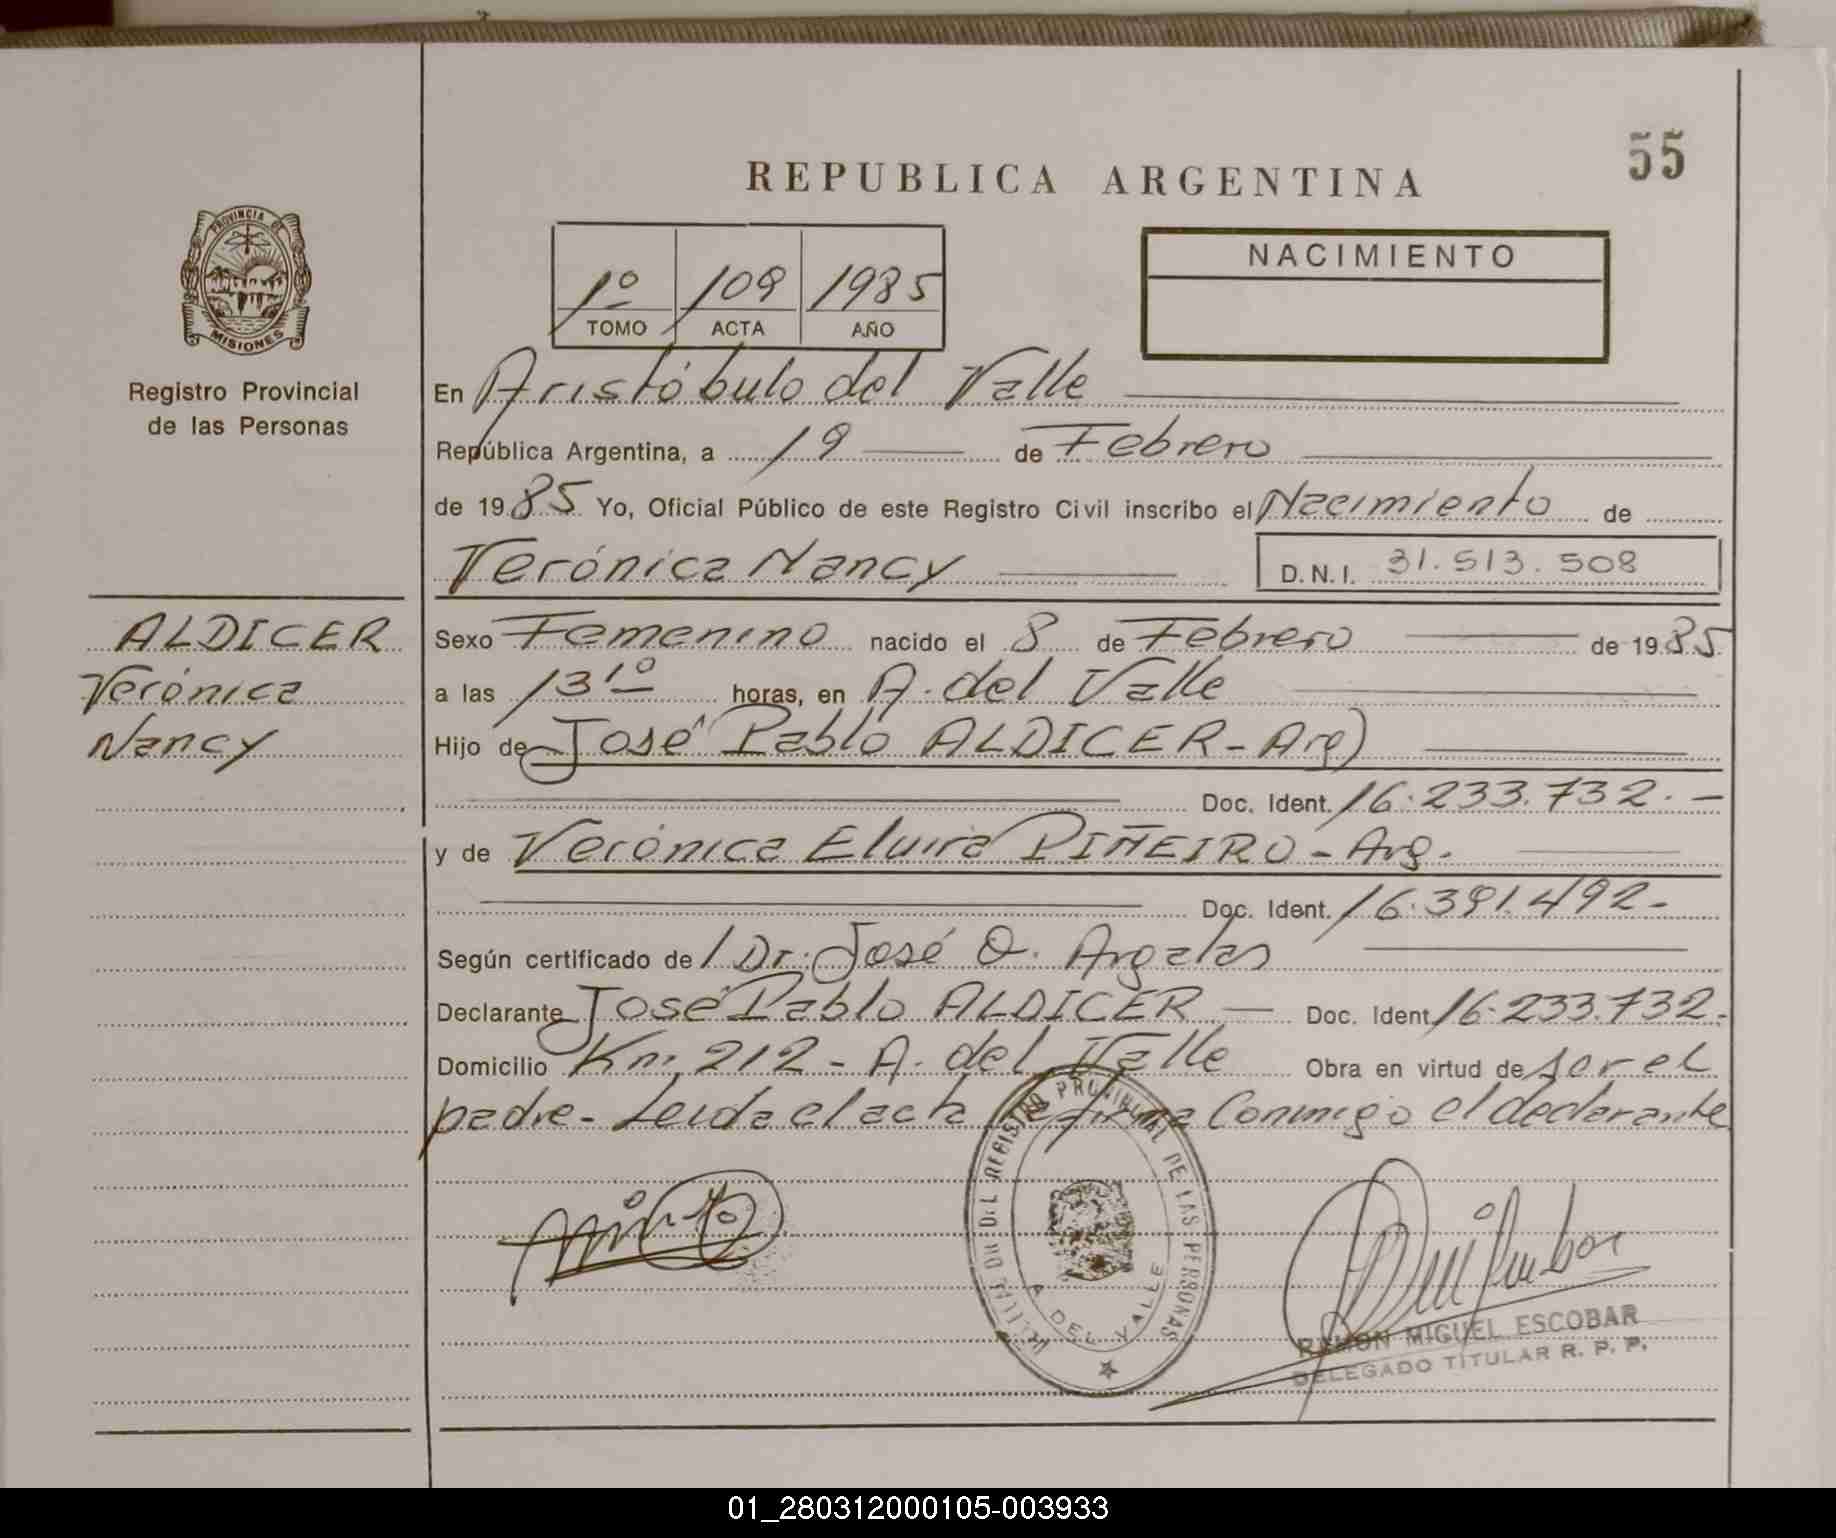 55
REPUBLICA ARGENTINA
PROVINCIA DE
MISIONES
Registro Provincial
de las Personas
1º 109 1985
TOMO ACTA AÑO
NACIMIENTO
En Aristóbulo del Valle
República Argentina, a 19 de Febrero
de 1985 Yo, Oficial Público de este Registro Civil inscribo el Nacimiento de
Verónica Nancy D.N.I. 31.513.508
ALDICER
Verónica
Nancy
Sexo Femenino nacido el 8 de Febrero de 1985
a las 13 1º horas, en A. del Valle
Hijo de José Pablo ALDICER - Arg)
Doc. Ident. 16.233.732.-
y de Verónica Elvira PIÑEIRO - Arg.
Doc. Ident. 16.391.492-
Según certificado de Dr. José O.
Declarante José Pablo ALDICER Doc. Ident 16.233.732.
Domicilio Km. 212 - A. del Valle Obra en virtud de ser el
padre - Leida el acta firma Conmigo el declarante
DEL REGISTRO PROVINCIAL DE LAS PERSONAS
A DEL VALLE
RAMON MIGUEL ESCOBAR
DELEGADO TITULAR R. P. P.
01_280312000105-003933